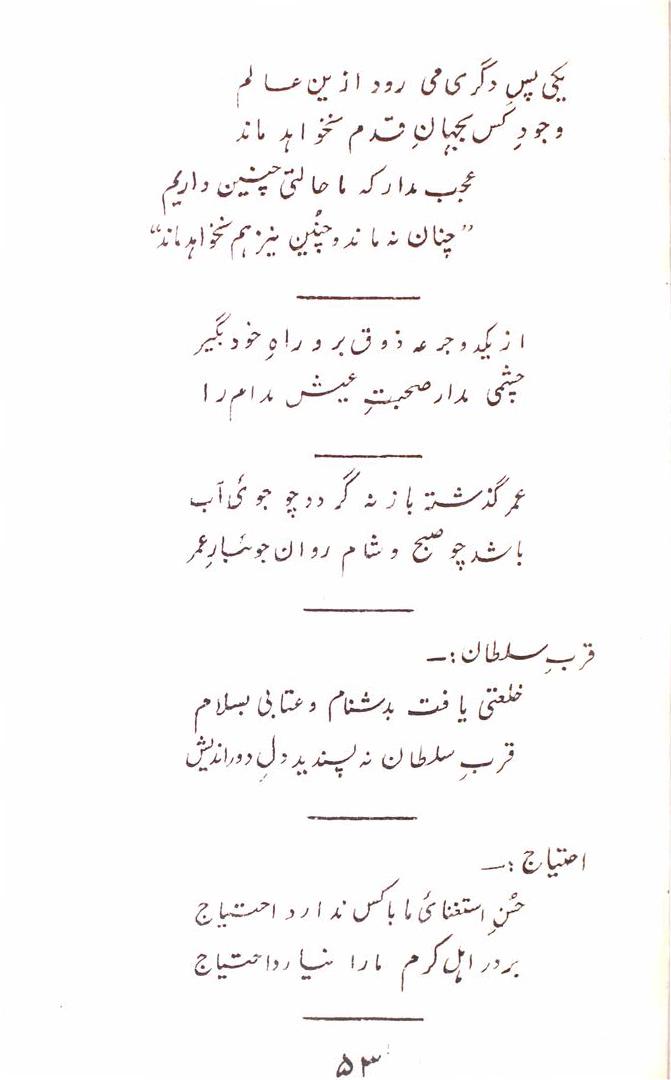 یکی پسِ دگری می رود ازین عالم
وجودِ کس بجہانِ قدم نخواہد ماند
عجب مدار کہ ما حالتی چنین داریم
"چنان نہ ماند و چنُین نیز ہم نخواہد ماند"
از یکدو جرعہ ذوق بر و راہِ خود بگیر
چشمی مدار صحبتِ عیش مدام را
عمر گذشتہ باز نہ گردد چو جوئ آب
باشد چو صبح و شام روان جوئبارِ عمر
قربِ سلطان :۔
خلعتی یافت بدشنام و عتابی بسلام
قربِ سلطان نہ پسندید دلِ دور اندیش
احتیاج :۔
حُسنِ استغنائ ما با کس ندارد احتیاج
بر درِ اہل کرم ما را نیارد احتیاج
۵۳